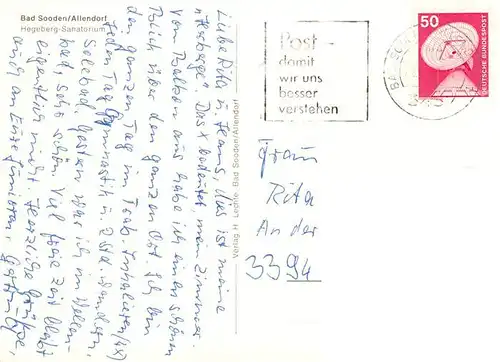 Bad Sooden/Allendorf
Hegeberg-Sanatorium
Liebe Rita u. Hans, dies ist meine
"Herberge". Das x bedeutet, mein Zimmer.
Vom Balkon aus habe ich einen schönen
Blick über den ganzen Ort. Ich bin
den ganzen Tag im Trab. Inhalieren (4x)
jeden Tag Gymnastik u. 2 Std. wandern,
Solebad. Gestern war ich im Wellen-
bad, sehr schön. Viel freie Zeit bleibt
eigentlich nicht. Herzliche Grüße
auch an Eure
Verlag H. Bad Sooden/Allendorf
Post -
damit
wir uns
besser
verstehen
50
DEUTSCHE BUNDESPOST
Frau
Rita
An der
3394